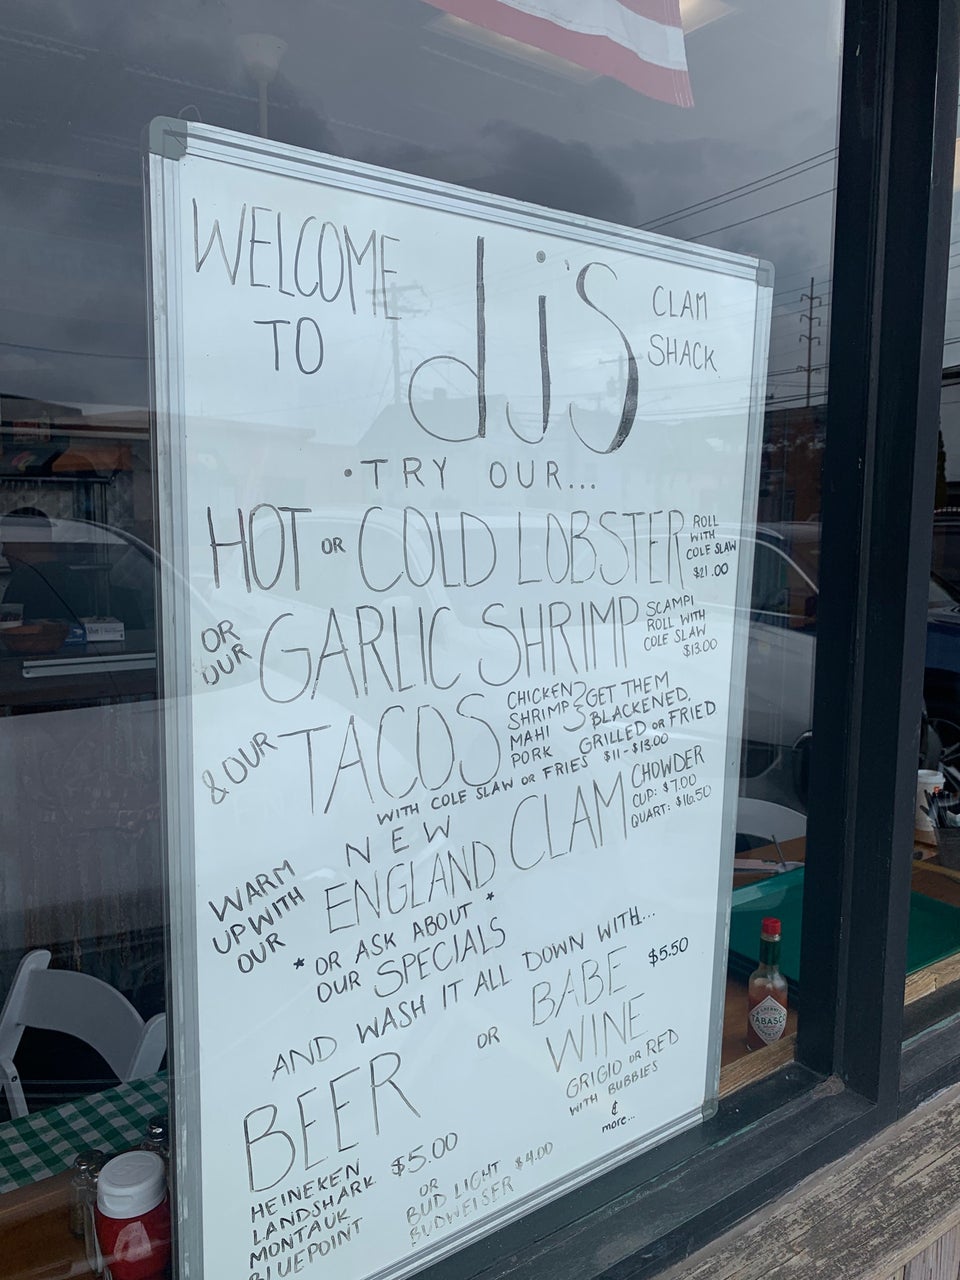 WELCOME TO
dj's
CLAM SHACK
• TRY OUR...
HOT OR COLD LOBSTER
ROLL WITH COLE SLAW $21.00
OR OUR GARLIC SHRIMP
SCAMPI ROLL WITH COLE SLAW $13.00
& OUR TACOS
CHICKEN
SHRIMP
MAHI
PORK
GET THEM BLACKENED,
GRILLED OR FRIED
WITH COLE SLAW OR FRIES $11 - $13.00
WARM UP WITH OUR
NEW ENGLAND CLAM
CHOWDER
CUP: $7.00
QUART: $16.50
* OR ASK ABOUT *
OUR SPECIALS
AND WASH IT ALL DOWN WITH...
BEER
OR
BABE WINE
$5.50
GRIGIO OR RED
WITH BUBBLES
&
more...
HEINEKEN
LANDSHARK
MONTAUK
BLUEPOINT
$5.00
OR
BUD LIGHT
BUDWEISER
$4.00
TABASCO